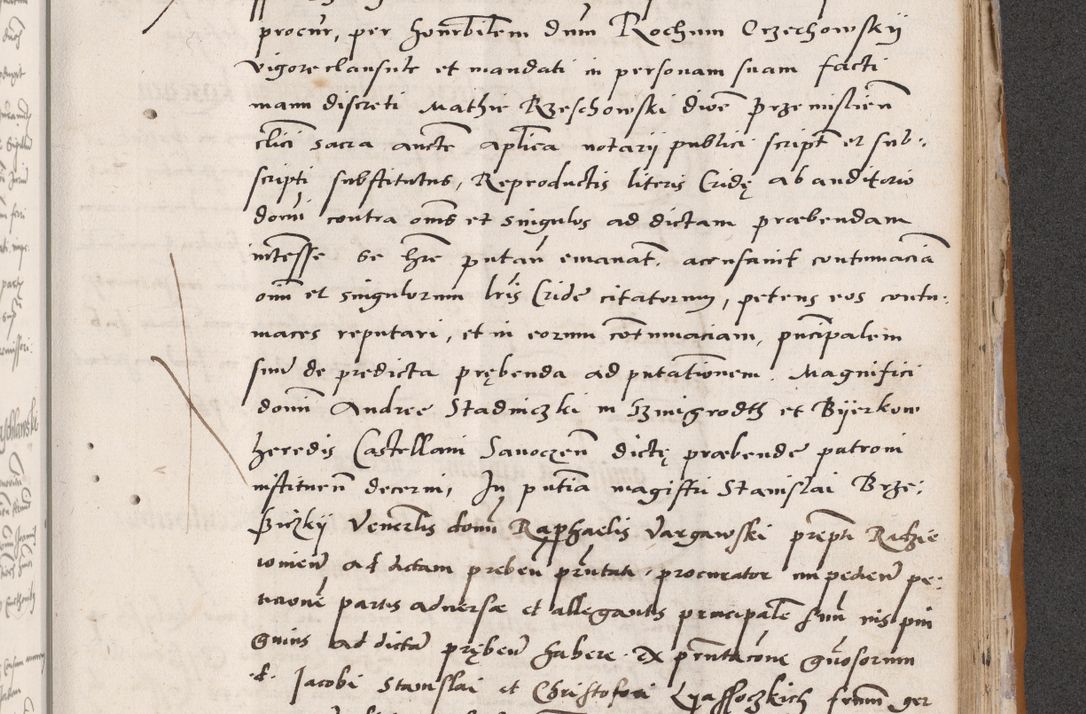 procur, per honrbilem dnm Rochum Orzechowskij
vigore clausule et mandati in personam suam facti
manu discreti Mathie Rzeschowski diœc Przemislien
clici sacra aucte aplica notarij publici script et sub-
scripti substitutus, Reproductis literis Cridę ab auditorio
domi contra oms et singulos ad dictam præbendam
intesse se hre putan emanat. accusavit contumacia
omi et singulorum lris Cride citatorum, petens eos contu-
maces reputari, et in eorum cotumaciam, pncipalem
suu de predicta prębenda ad putationem Magnifici
domi Andree Stadniczki in Szmigrodth et Bijerkow
heredis Castellani Sanoczen dictę præbende patroni
instituen decerni, In putia magistri Stanislai Brze-
Venerlis domi Raphaelis Vargawski prepti Radzie
iouien ad dictam preben prntati procurator impedien pe-
ticione partis adversæ et allegantis principale suu ius pin
guius ad dicta pręben habere ex prntacone gnosorum
d. Jacobi Stanislai et Christofori frum ger